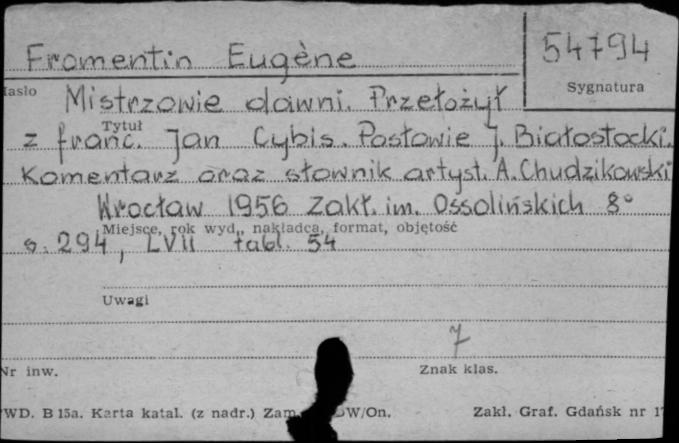 Fromentin Eugène
54794
Hasło
Sygnatura
Mistrzowie dawni. Przełożył
Tytuł
z franc. Jan Cybis. Posłowie J. Białostocki.
Komentarz oraz słownik artyst. A. Chudzikowski
Wrocław 1956 Zakł. im. Ossolińskich 8°
Miejsce, rok wyd., nakładca, format, objętość
s. 294, LVII tabl. 54
Uwagi
7
Nr inw.
Znak klas.
PWD. B 15a. Karta katal. (z nadr.) Zam. W/On.
Zakł. Graf. Gdańsk nr 17